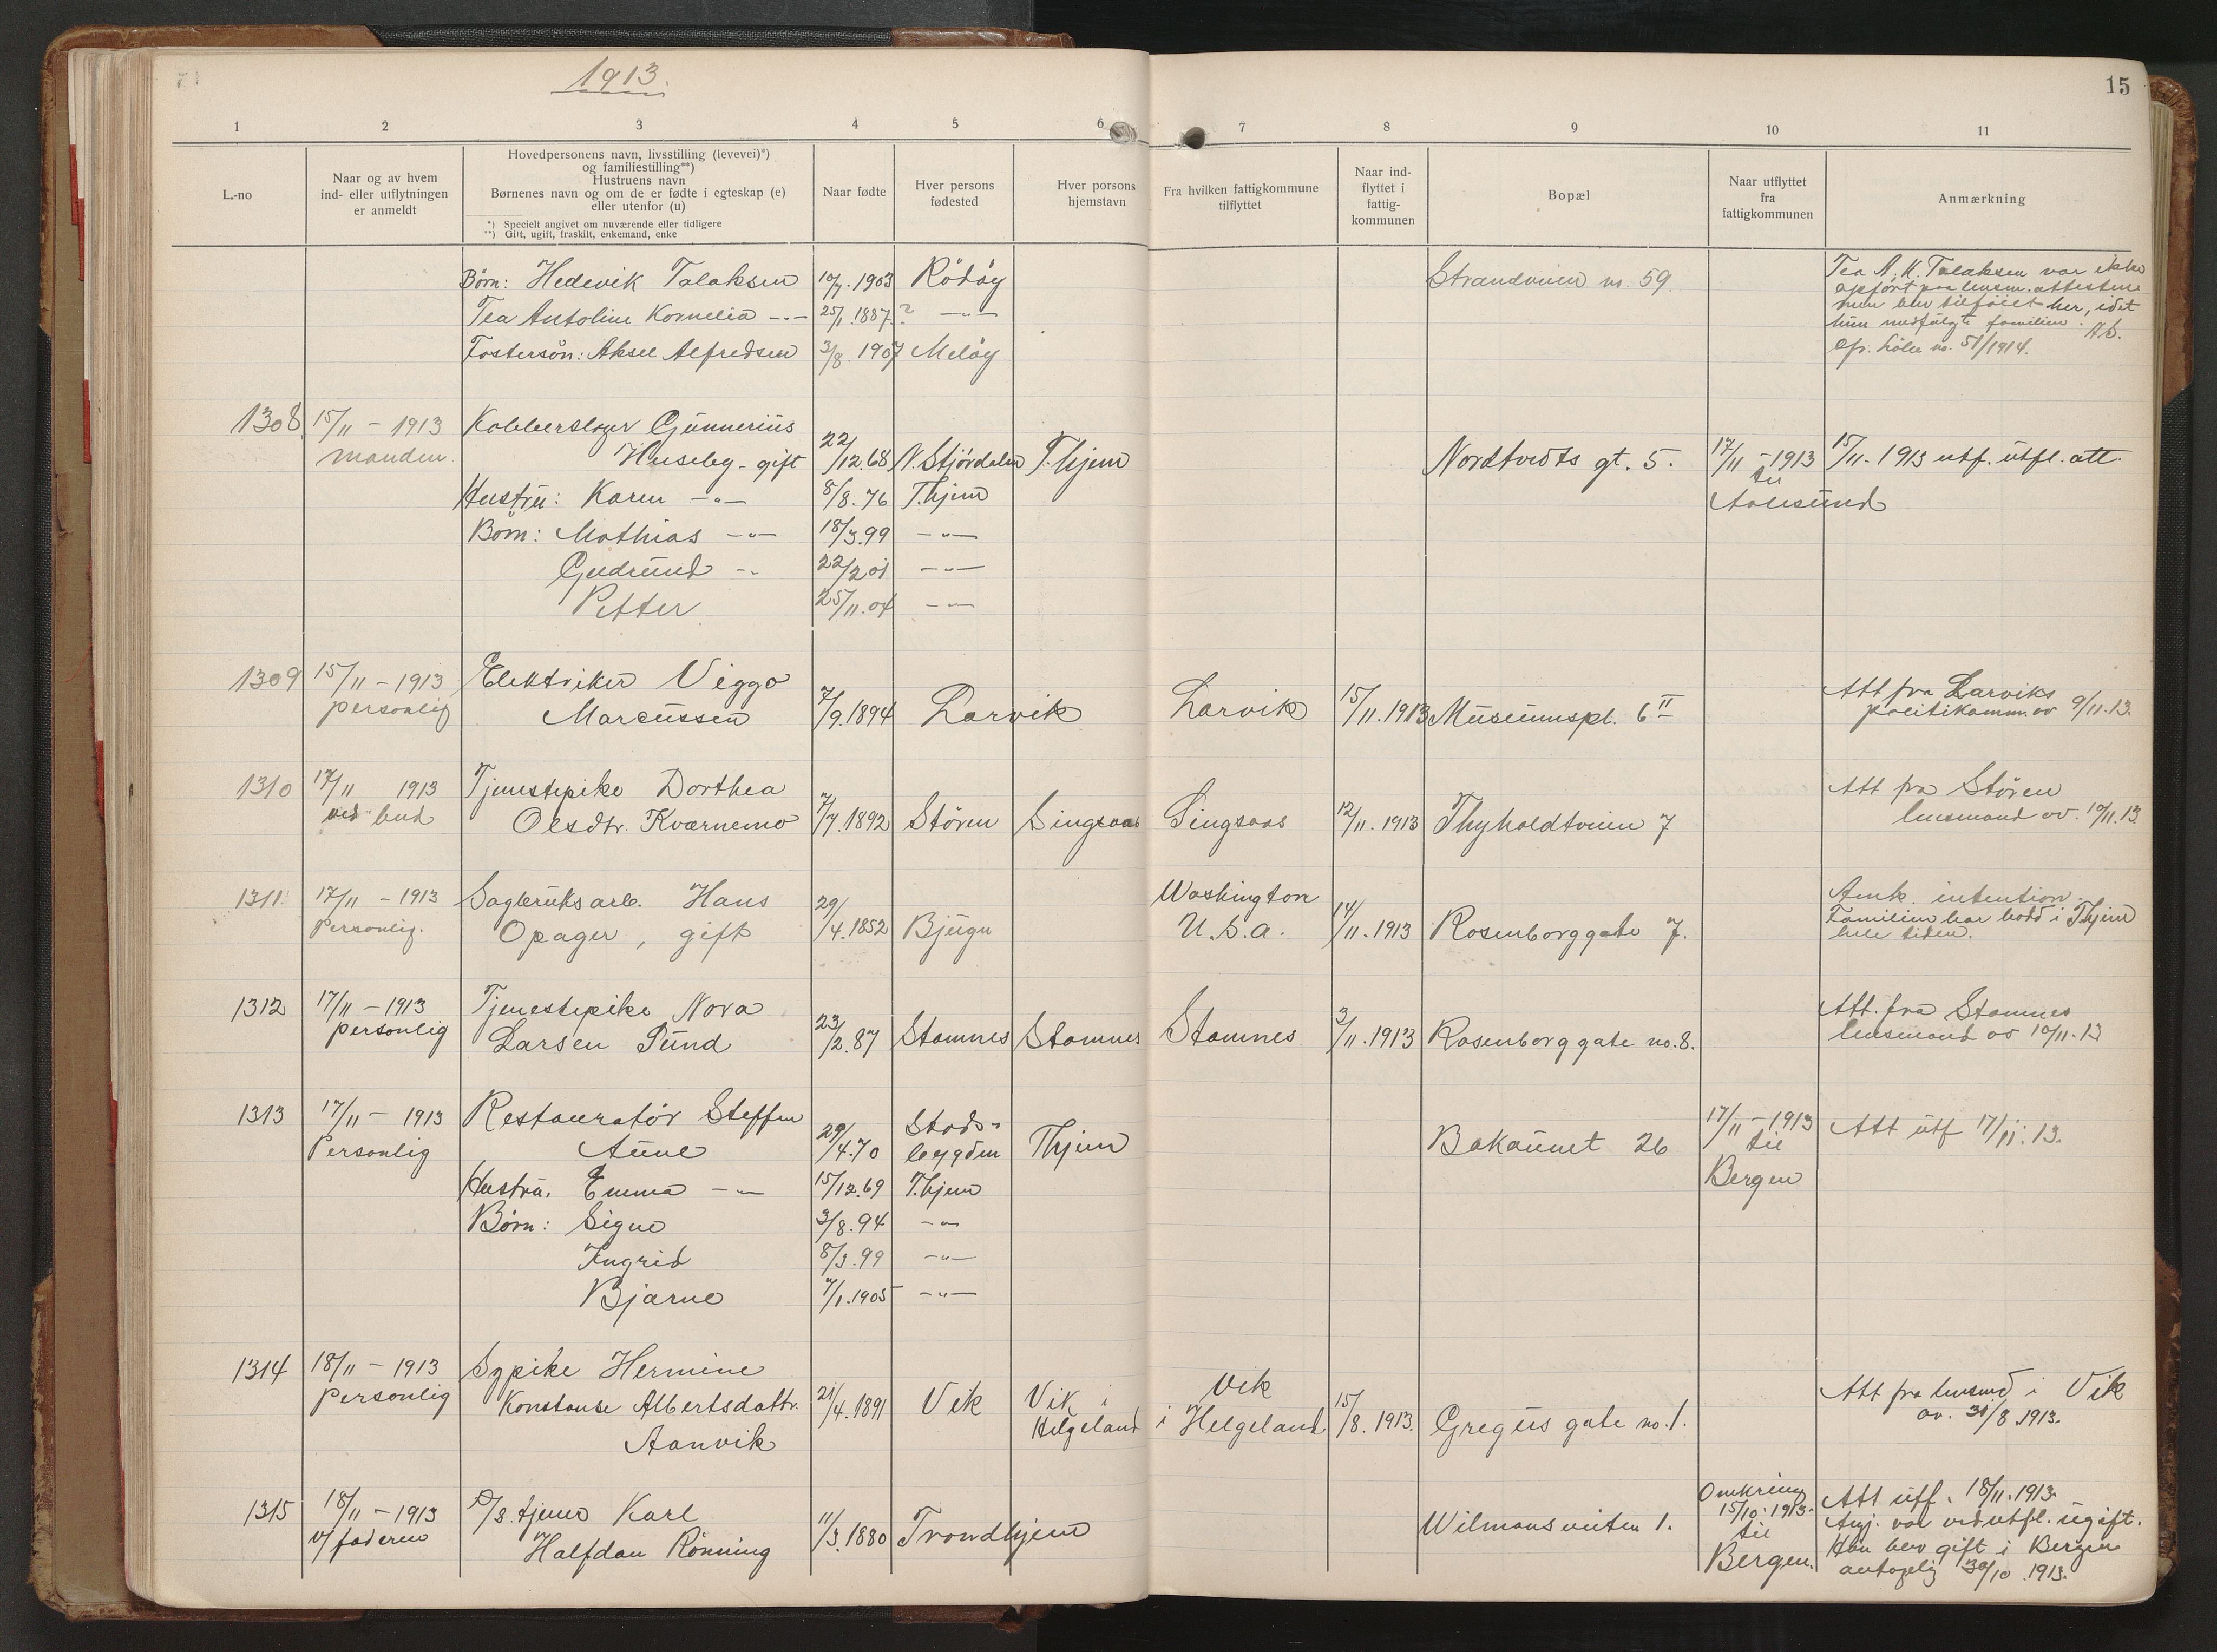 1913.
15
1 2 3 4 5 6 7 8 9 10 11
L.-no
Naar og av hvem
ind- eller utflytningen
er anmeldt
Hovedpersonens navn, livsstilling (levevei)*)
og familiestilling**)
Hustruens navn
Børnenes navn og om de er fødte i egteskap (e)
eller utenfor (u)
*) Specielt angivet om nuværende eller tidligere
**) Gift, ugift, fraskilt, enkemand, enke
Naar fødte
Hver persons
fødested
Hver porsons
hjemstavn
Fra hvilken fattigkommune
tilflyttet
Naar ind-
flyttet i
fattig-
kommunen
Bopæl
Naar utflyttet
fra
fattigkommunen
Anmærkning
Børn: Hedevik Talaksen 10/7. 1903 Rödöy Strandveien no. 59.
Tea Antoline Kornelia -"- 25/1. 1887. ? -"-
Fostersön: Aksel Alfredsen 3/8. 1907 Melöy
Tea A. K. Talaksen var ikke
opfört paa lensm. attesten
men blev tilföiet her, idet
hun medfulgte familien.
cfr. löbe no. 51/1914.
1308 15/11 - 1913 Kobberslager Gunnerius
manden. Huseby - gift 22/12.68 N. Stjördalen T.hjem Nordtvedts gt. 5. 17/11 - 1913 15/11. 1913 utf. utfl. att.
til
Hustru: Karen -"- 8/8.76 T.hjem Aalesund
Børn: Mathias -"- 18/3.99 -"-
Gudrund -"- 22/2 01 -"-
Petter 25/11.04 -"-
1309 15/11 - 1913 Elektriker Viggo Att fra Larviks
personlig Marcussen 7/9.1894 Larvik Larvik 15/11.1913 Museumspl. 6 II politikamm. av 9/11.13.
1310 17/11 1913 Tjenestepike Dorthea Att fra Stören
ved bud Olsdtr. Kværnemo 7/7.1892 Stören Singsaas Singsaas 12/11.1913 Thyholdtveien 7 lensmand av. 10/11.13.
1311. 17/11 - 1913 Sagbruksarb. Hans Washington
Personlig. Opager, gift 29/4.1852 Bjugn U.S.a. 14/11.1913 Rosenborggate 7.
Amk. intention.
Familien har bodd i Thjem
hele tiden.
1312 17/11 - 1913 Tjenestepike Nora Att. fra Stamnes
personlig Larsen Sund 23/2.87 Stamnes Stamnes Stamnes 3/11.1913 Rosenborggate no. 8. lensmand av 10/11.13
1313 17/11 - 1913 Restauratör Steffen Stads-
Personlig Aune 29/4.70 bygden Thjem Bakaunet 26 17/11 - 1913 Att utf 17/11.13.
til
Hustru. Emma -"- 15/12.69 T.hjem Bergen
Børn: Signe 3/8.94 -"-
Ingrid 8/3.99 -"-
Bjarne 7/1.1905 -"-
1314 18/11 - 1913 Sypike Hermine
personlig Konstanse Albertsdattr. 21/4.1891 Vik Vik i Vik
Helgeland i Helgeland 15/8.1913. Gregus gate no. 1.
Aanvik
Att fra lensmd i Vik
av. 31/8 1913.
1315 18/11 - 1913 D/S. tjener Karl
v/ faderen Halfdan Rönning 11/3.1880 Trondhjem Wilmansveiten 1.
Omkring
15/10. 1913.
til
Bergen.
Att utf. 18/11.1913.
Angj. var ved utfl. ugift.
Han blev gift i Bergen
antagelig 30/10 .1913.